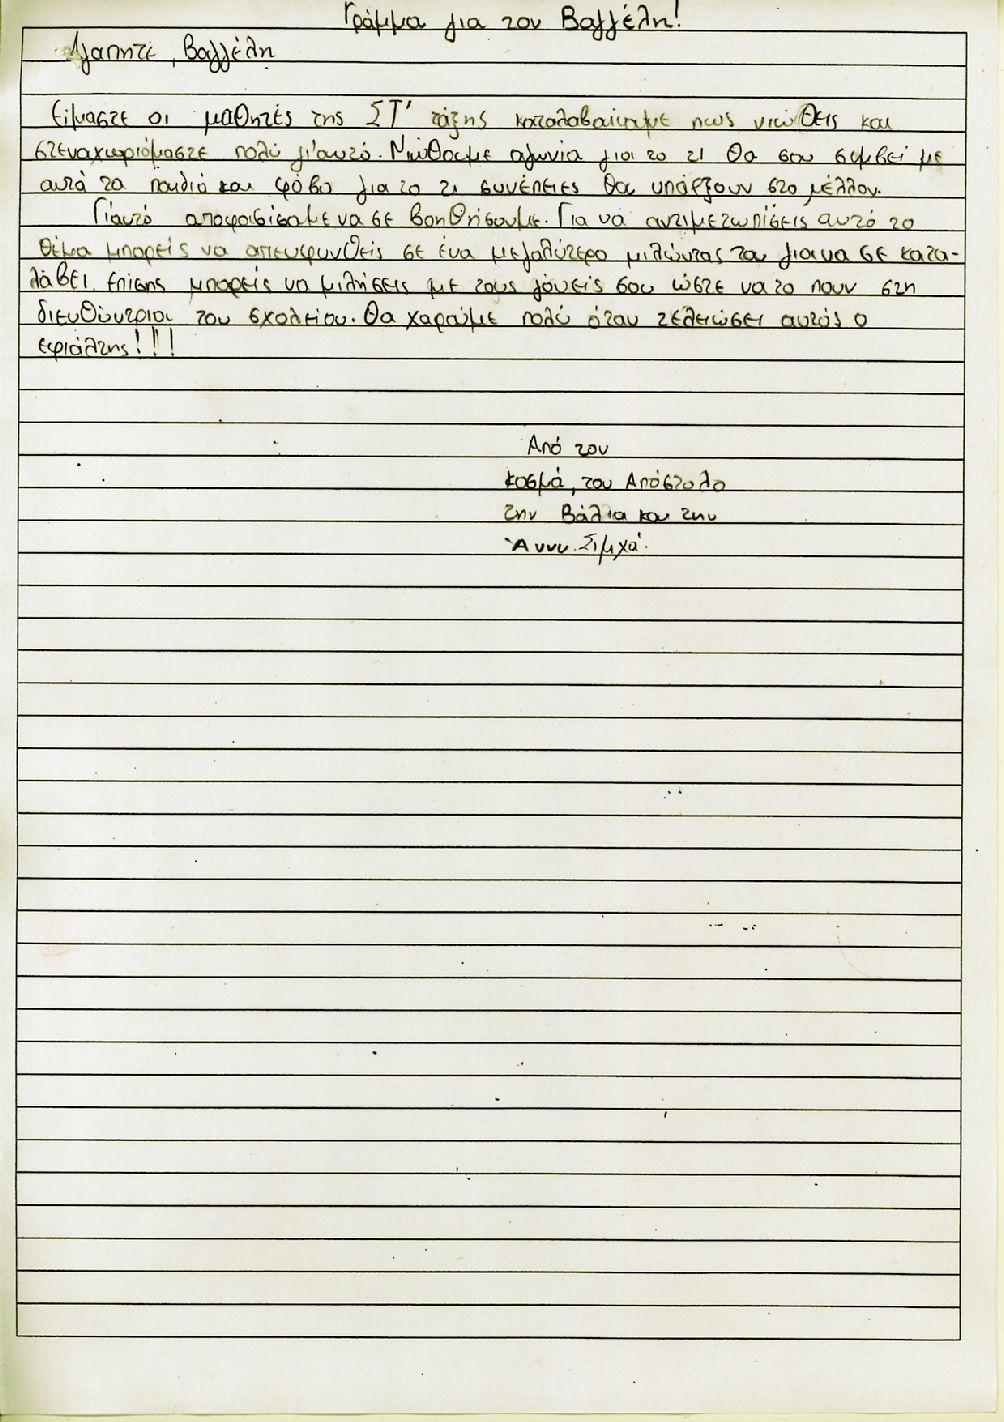 Γράμμα για τον Βαγγέλη!
Αγαπητέ, Βαγγέλη
Είμαστε οι μαθητές της ΣΤ' τάξης καταλαβαίνουμε πως νιώθεις και
στεναχωριόμαστε πολύ γι'αυτό. Νιώθουμε αγωνία για το τι θα σου συμβεί με
αυτά τα παιδιά και φόβο για το τι συνέπειες θα υπάρξουν στο μέλλον.
Γιαυτό αποφασίσαμε να σε βοηθήσουμε. Για να αντιμετωπίσεις αυτό το
θέμα μπορείς να απευθυνθείς σε ένα μεγαλύτερο μιλώντας του για να σε κατα-
λάβει. Επίσης μπορείς να μιλήσεις με τους γονείς σου ώστε να το πουν στη
διευθύντρια του σχολείου. Θα χαρούμε πολύ όταν τελειώσει αυτός ο
εφιάλτης!!!
Από τον
κοσμά, τον Απόστολο
την Βάλια και την
Άννυ. Σιμχά.